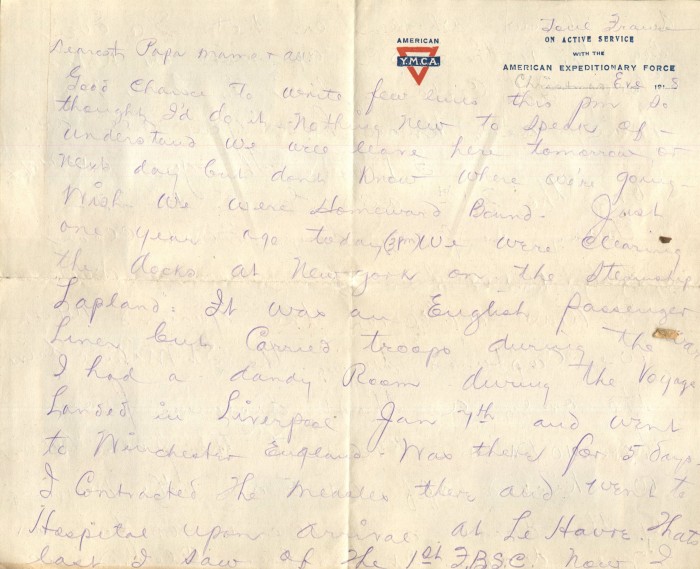 Toul France
AMERICAN
Y.M.C.A.
ON ACTIVE SERVICE
WITH THE
AMERICAN EXPEDITIONARY FORCE
Christmas Eve 1918
Dearest Papa Mama & all
Good chance to write few lines this pm so
thought I'd do it - Nothing new to speak of -
understand we will leave here tomorrow or
next day but don't know where we're going -
Wish we were Homeward Bound. Just
one year ago today (3pm) We were clearing
the docks at New York on the Steamship
Lapland. It was an English passenger
Liner but Carried troops during the
I had a dandy Room during the Voyage
Landed in Liverpool Jan 7th and went
to Winchester England - Was there for 5 days
I Contracted the measles there and went to
Hospital upon arrival at Le Havre. Thats
last I saw of the 1st F.B.S.C. Now I